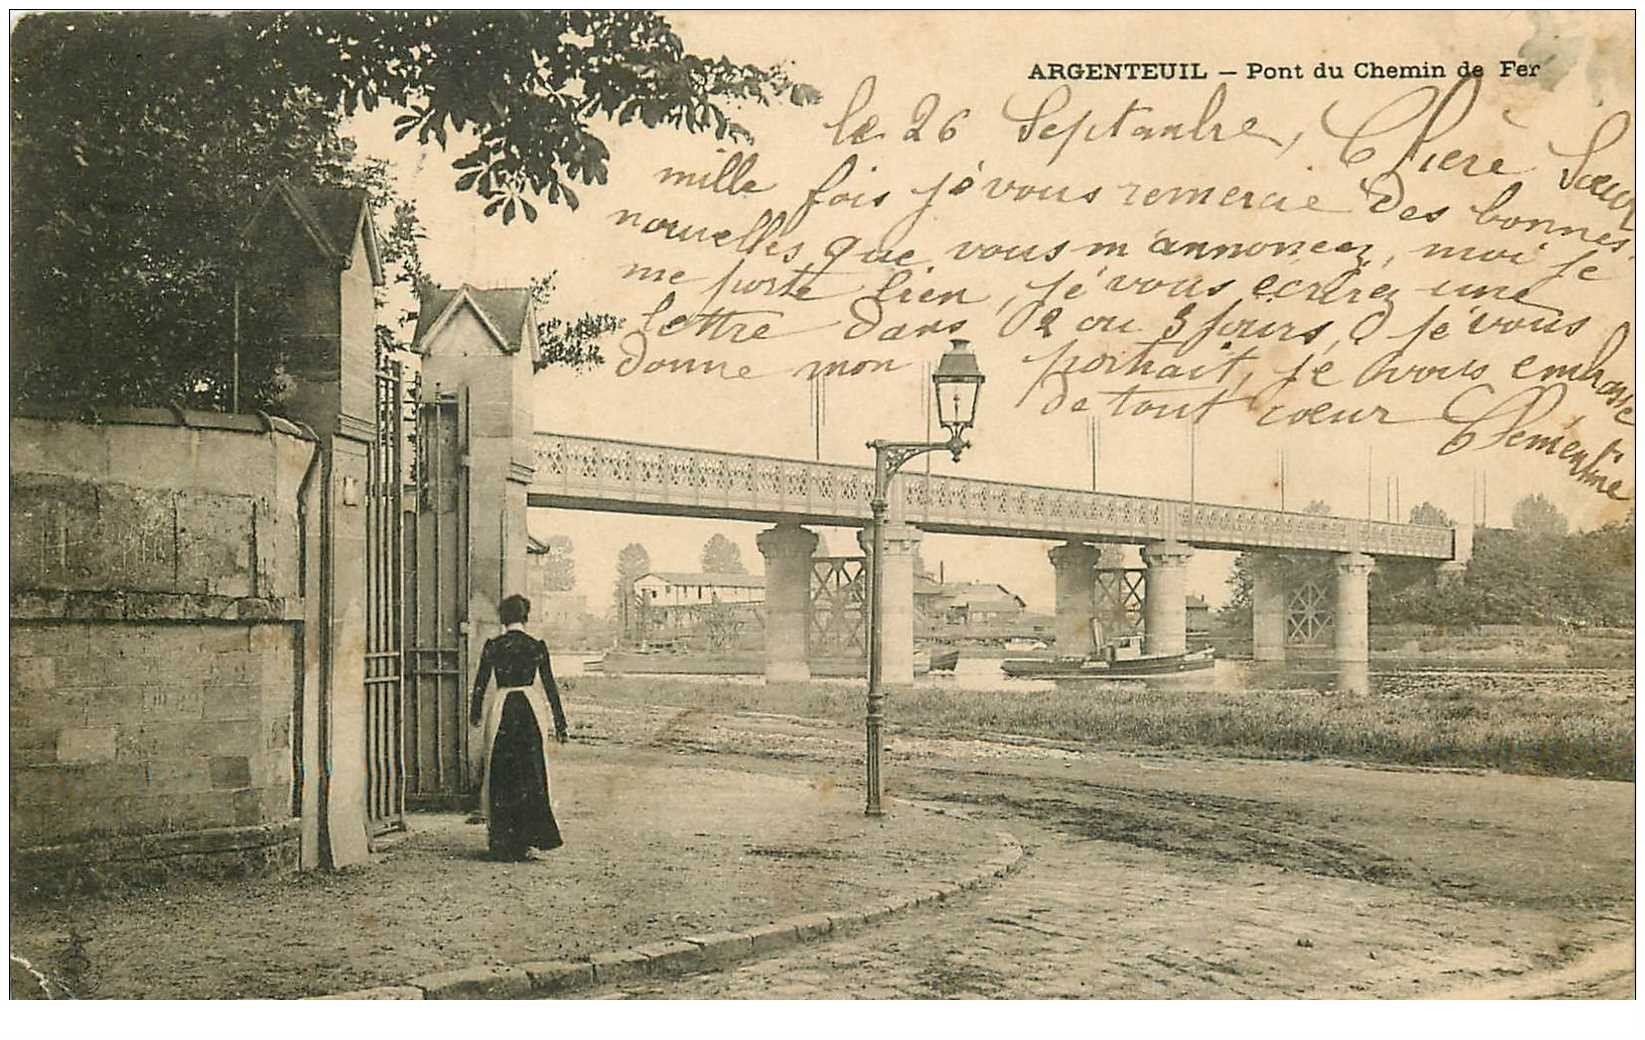 ARGENTEUIL — Pont du Chemin de Fer
le 26 Septambre, Chere Sœur
mille fois je vous remercie des bonnes
nouvelles que vous m'annoncez, moi je
me porte bien, je vous ecrirez une
lettre dans 2 ou 3 jours, je vous
donne mon portrait, je vous embrasse
de tout cœur Clementine